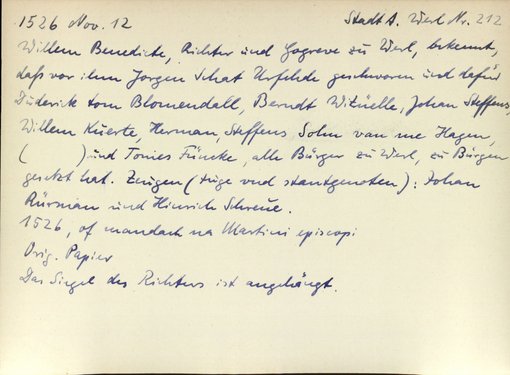 1526 Nov. 12 Stadt A. Werl Nr. 212
Willem Benedicte, Richter und Gogreve zu Werl, bekennt,
daß vor ihm Jorgen Schat Urfehde geschworen und dafür
Diderick tom Blomendall, Berndt Witzüelle, Johan Steffens,
Willem Kuerte, Herman, Steffens Sohn van me Hagen,
( ) und Tonies Füncke, alle Bürger zu Werl, zu Bürgen
gesetzt hat. Zeugen (tüge vnd stantgenoten): Johan
Rürman und Hinrich Schreue.
1526, of mandach na Martini episcopi
Orig. Papier
Das Siegel des Richters ist angehängt.